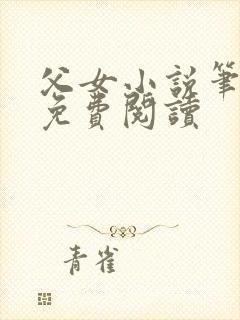 父女小说笔
免費閱讀
青雀